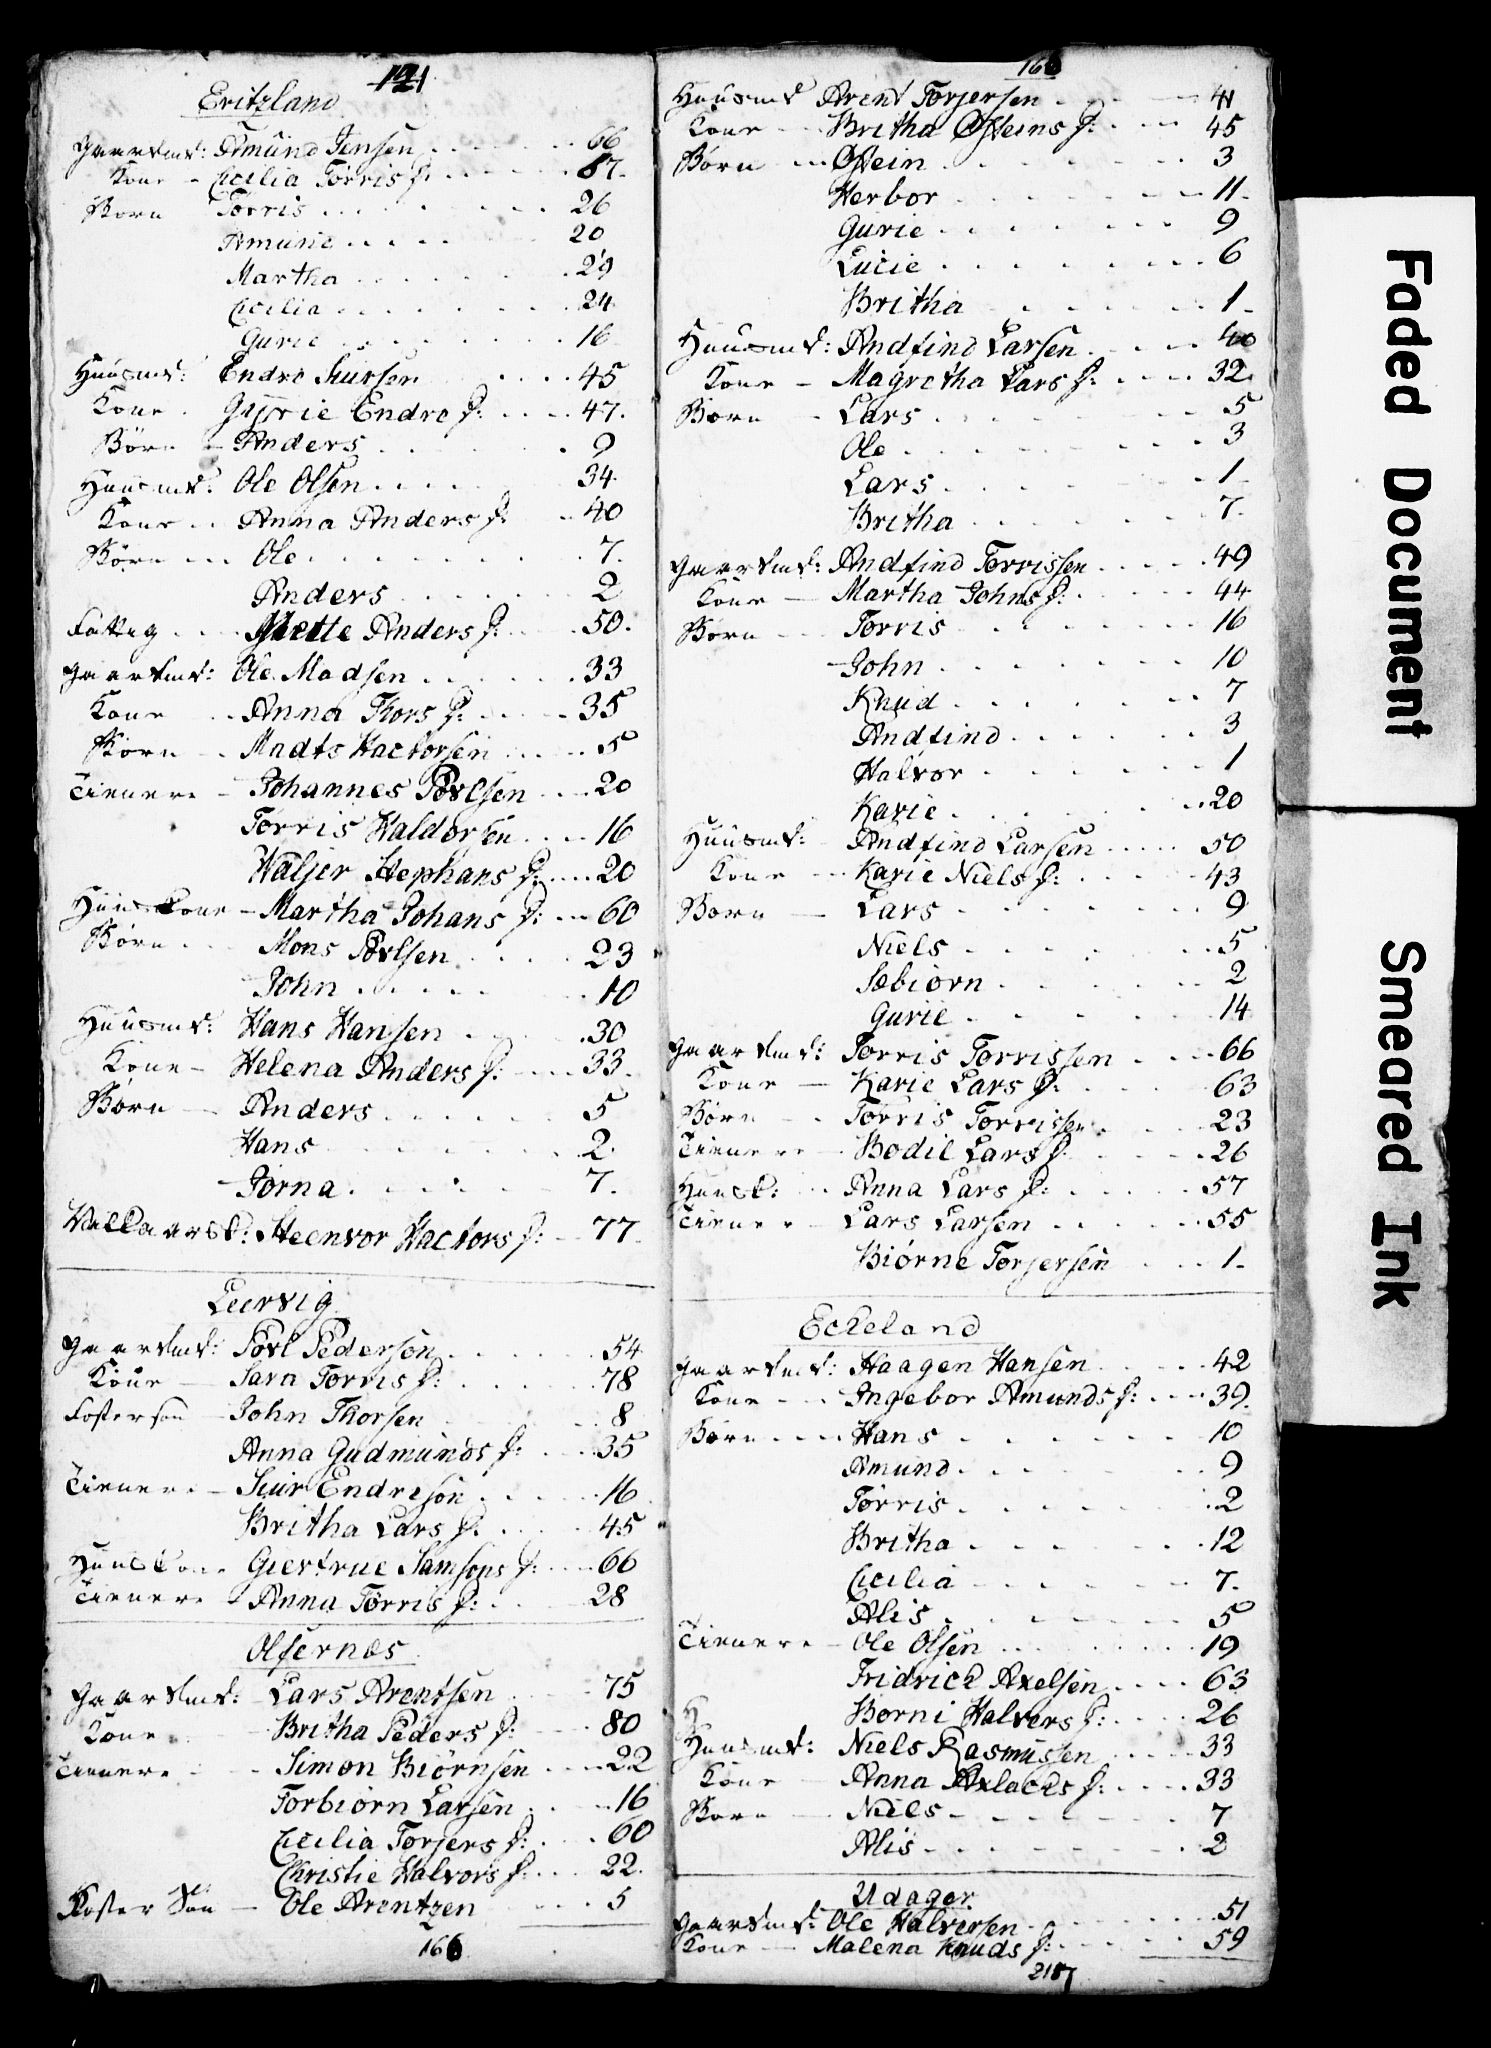 121
Eritzland
gaardmd: Amund Jensen 66
Kone - Cicilia Torris d: 67.
Born Torris 26
Amund 20
Martha 29
Cicilia 24
Gurie 16
Huusmd: Endre Siursen 45
Kone Gurie Endre d: 47.
Børn - Anders 9
Huusmd: Ole Olsen 34.
Kone Anna Anders d: 40
Børn Ole 7.
Anders 2
Fattig Anders d: 50.
gaardmd: Ole Madsen 33
Kone Anna Thors d: 35
Børn Madts Hactorsen 5
Tienere - Johannes Povelsen 20
Torris Haldorsen 16
Waljer Stephans d: 20
Huuskone - Martha Johans d: 60
Børn Mons Povlsen 23
John 10
Huusmd: Hans Hansen 30
Kone - Helena Anders d: 33.
Børn - Anders 5
Hans 2.
Jorna 7.
Vilkaarsk: Steenvor Hactors d: 77
Leervig
gaardmd: Povl Pedersøn 54
Kone - Sara Torris d: 78
Fostersøn - John Thorsen 8
Anna Gudmunds d: 35
Tienere - Siur Endresøn 16
Britha Lars d: 45
Huuskone Giertrue Samsons d: 66
Tienere Anna Torris d: 28
Olfernæs
gaardmd: Lars Arentsen 75
Kone Britha Peders d: 80
Tienere Simon Biørnsen 22
Torbiørn Larsen 16
Cicilia Torjers d: 60
Christie Halvors d: 22.
Foster Søn - Ole Arentzen 5
166
166
Huusmd Arent Torjersen 41
Kone Britha Østeins d: 45
Børn Østein 3
Herbor 11.
Gurie 9
Lucie 6
Britha 1
Huusmd: Andfind Larsen 40
Kone - Magretha Lars d: 32.
Børn - Lars 5
Ole 3
Lars 1
Britha 7.
gaardmd: Andfind Torrissen 49
Kone - Martha Johns d: 44
Børn Torris 16
John 10
Knud 7
Andfind 3
Halvor 1
Karie 20
Huusmd: Andfind Larsen 50
Kone Karie Niels d: 43
Børn - Lars 9
Niels 5
Sebiørn 2
Gurie 14
gaardmd: Torris Torrissen 66
Kone - Karie Lars d: 63
Børn Torris Torrissen 23
Tienere Bodil Lars d: 26
Huusk: Anna Lars d: 57
Tienere - Lars Larsen 55
Biørne Torjersen 1
Eckeland
gaardmd: Haagen Hansen 42
Kone Ingebor Amunds d: 39.
Børn Hans 10
Amund 9
Torris 2
Britha 12
Cicilia 7.
Alis 5
Tienere - Ole Olsen 19
Fridrich Axelsen 63
H Borni Halvers d: 26
Huusmd: Niels Rasmussen 33
Kone Anna Axlachs d: 33
Børn - Niels 7
Alis 2
Udager
gaardmd: Ole Halversen 51
Kone - Malena Knuds d: 59
2187
Faded Document
Smeared Ink